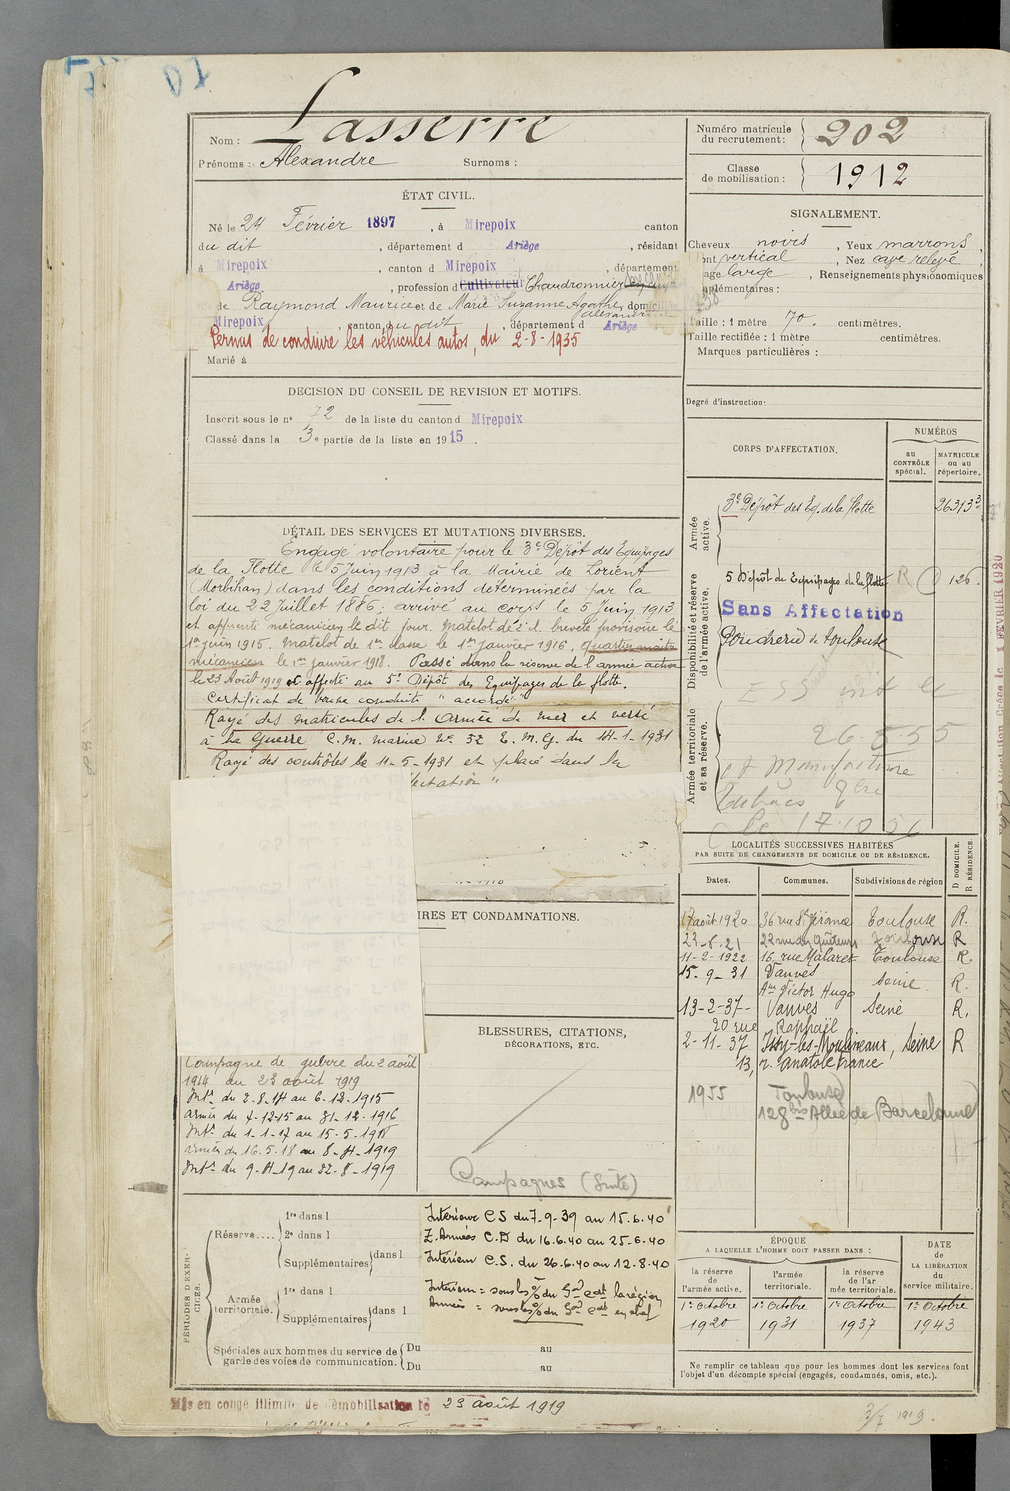 Nom : Lasserre
Prénoms : Alexandre Surnoms :
Numéro matricule du recrutement : 202
Classe de mobilisation : 1912
ÉTAT CIVIL.
Né le 24 Février 1897, à Mirepoix canton
du dit, département d Ariège, résidant
à Mirepoix, canton d Mirepoix, département
Ariège, profession d Cultivateur Chaudronnier
de Raymond Maurice et de Marie Suzanne Agathe, domicilié
Alexandrine
Mirepoix canton du dit, département d Ariège
Permis de conduire les véhicules autos, du 2-8-1935
Marié à
SIGNALEMENT.
Cheveux noirs, Yeux marrons,
ont vertical, Nez cave relevé,
age large, Renseignements physionomiques
plémentaires :
Taille : 1 mètre 70. centimètres.
Taille rectifiée : 1 mètre centimètres.
Marques particulières :
Degré d'instruction :
DECISION DU CONSEIL DE REVISION ET MOTIFS.
Inscrit sous le n° 72 de la liste du canton d Mirepoix
Classé dans la 3e partie de la liste en 1915.
DÉTAIL DES SERVICES ET MUTATIONS DIVERSES.
Engagé volontaire pour le 3e Dépôt des Equipages
de la Flotte le 5 Juin 1913 à la Mairie de Lorient
(Morbihan) dans les conditions déterminées par la
loi du 22 Juillet 1886; arrivé au corps le 5 Juin 1913
et apprenti mécanicien le dit jour. Matelot de 2e cl. breveté provisoire le
1er juin 1915. Matelot de 1re classe le 1er janvier 1916. quartier maître
mécanicien le 1er janvier 1918. Passé dans la réserve de l'armée active
le 23 Août 1919 et affecté au 5e Dépôt des Equipages de la flotte.
Certificat de bonne conduite "accordé"
Rayé des matricules de l'Armée de mer et versé
à la Guerre C.M. Marine N° 32 E.M.G. du 14-1-1931
Rayé des contrôles le 11-5-1931 et placé dans la
fectation"
CORPS D'AFFECTATION.
NUMÉROS
au contrôle spécial.
matricule ou au répertoire.
Armée active.
3e Dépôt des Eq. de la flotte 26313 3
Disponibilité et réserve de l'armée active.
5 Dépôt des Equipages de la flotte R 126
Sans Affectation
Poudrerie de Toulouse
Armée territoriale et sa réserve.
26-5-55
Manufacture
le 17.10.56
LOCALITÉS SUCCESSIVES HABITÉES
PAR SUITE DE CHANGEMENTS DE DOMICILE OU DE RÉSIDENCE.
Dates. Communes. Subdivisions de région D DOMICILE. R RÉSIDENCE.
17 août 1920 36 rue St Jérome Toulouse R.
23-8-21 22 rue Toulouse R
11-2-1922 16, rue Malaret Toulouse R.
15-9-31 Vanves Seine R.
Ave Victor Hugo
13-2-37- Vanves Seine R.
20 rue Raphaël
2-11-37 Issy-les-Moulineaux, Seine R
13, r. Anatole France
1955 Toulouse
128 bis Allée de Barcelonne
IRES ET CONDAMNATIONS.
BLESSURES, CITATIONS,
DÉCORATIONS, ETC.
Campagne de guerre du 2 août
1914 au 23 août 1919
Int. du 2-8-14 au 6-12-1915
Armée du 7-12-15 au 31-12-1916
Int. du 1-1-17 au 15-5-1918
armées du 16-5-18 au 8-4-1919
Int. du 9-4-19 au 22-8-1919
Campagnes (Suite)
Intérieur C S du 7-9-39 au 15-6-40
Z. Armées C.D du 16.6.40 au 25-6-40
Intérieur C.S. du 26-6-40 au 12-8-40
Intérieur = sous les % du Gal Cdt la région
Armées = sous les % du Gal Cdt en chef
PÉRIODES D'EXERCICES.
Réserve.... 1re dans l
2e dans l
Supplémentaires dans l
Armée territoriale. 1re dans l
Supplémentaires dans l
Spéciales aux hommes du service de garde des voies de communication. Du au
Du au
ÉPOQUE
A LAQUELLE L'HOMME DOIT PASSER DANS :
DATE de LA LIBÉRATION du service militaire.
la réserve de l'armée active. l'armée territoriale. la réserve de l'armée territoriale.
1er Octobre 1920
1er Octobre 1931
1er Octobre 1937
1er Octobre 1943
Ne remplir ce tableau que pour les hommes dont les services font
l'objet d'un décompte spécial (engagés, condamnés, omis, etc.).
Mis en congé illimité de démobilisation le 23 août 1919